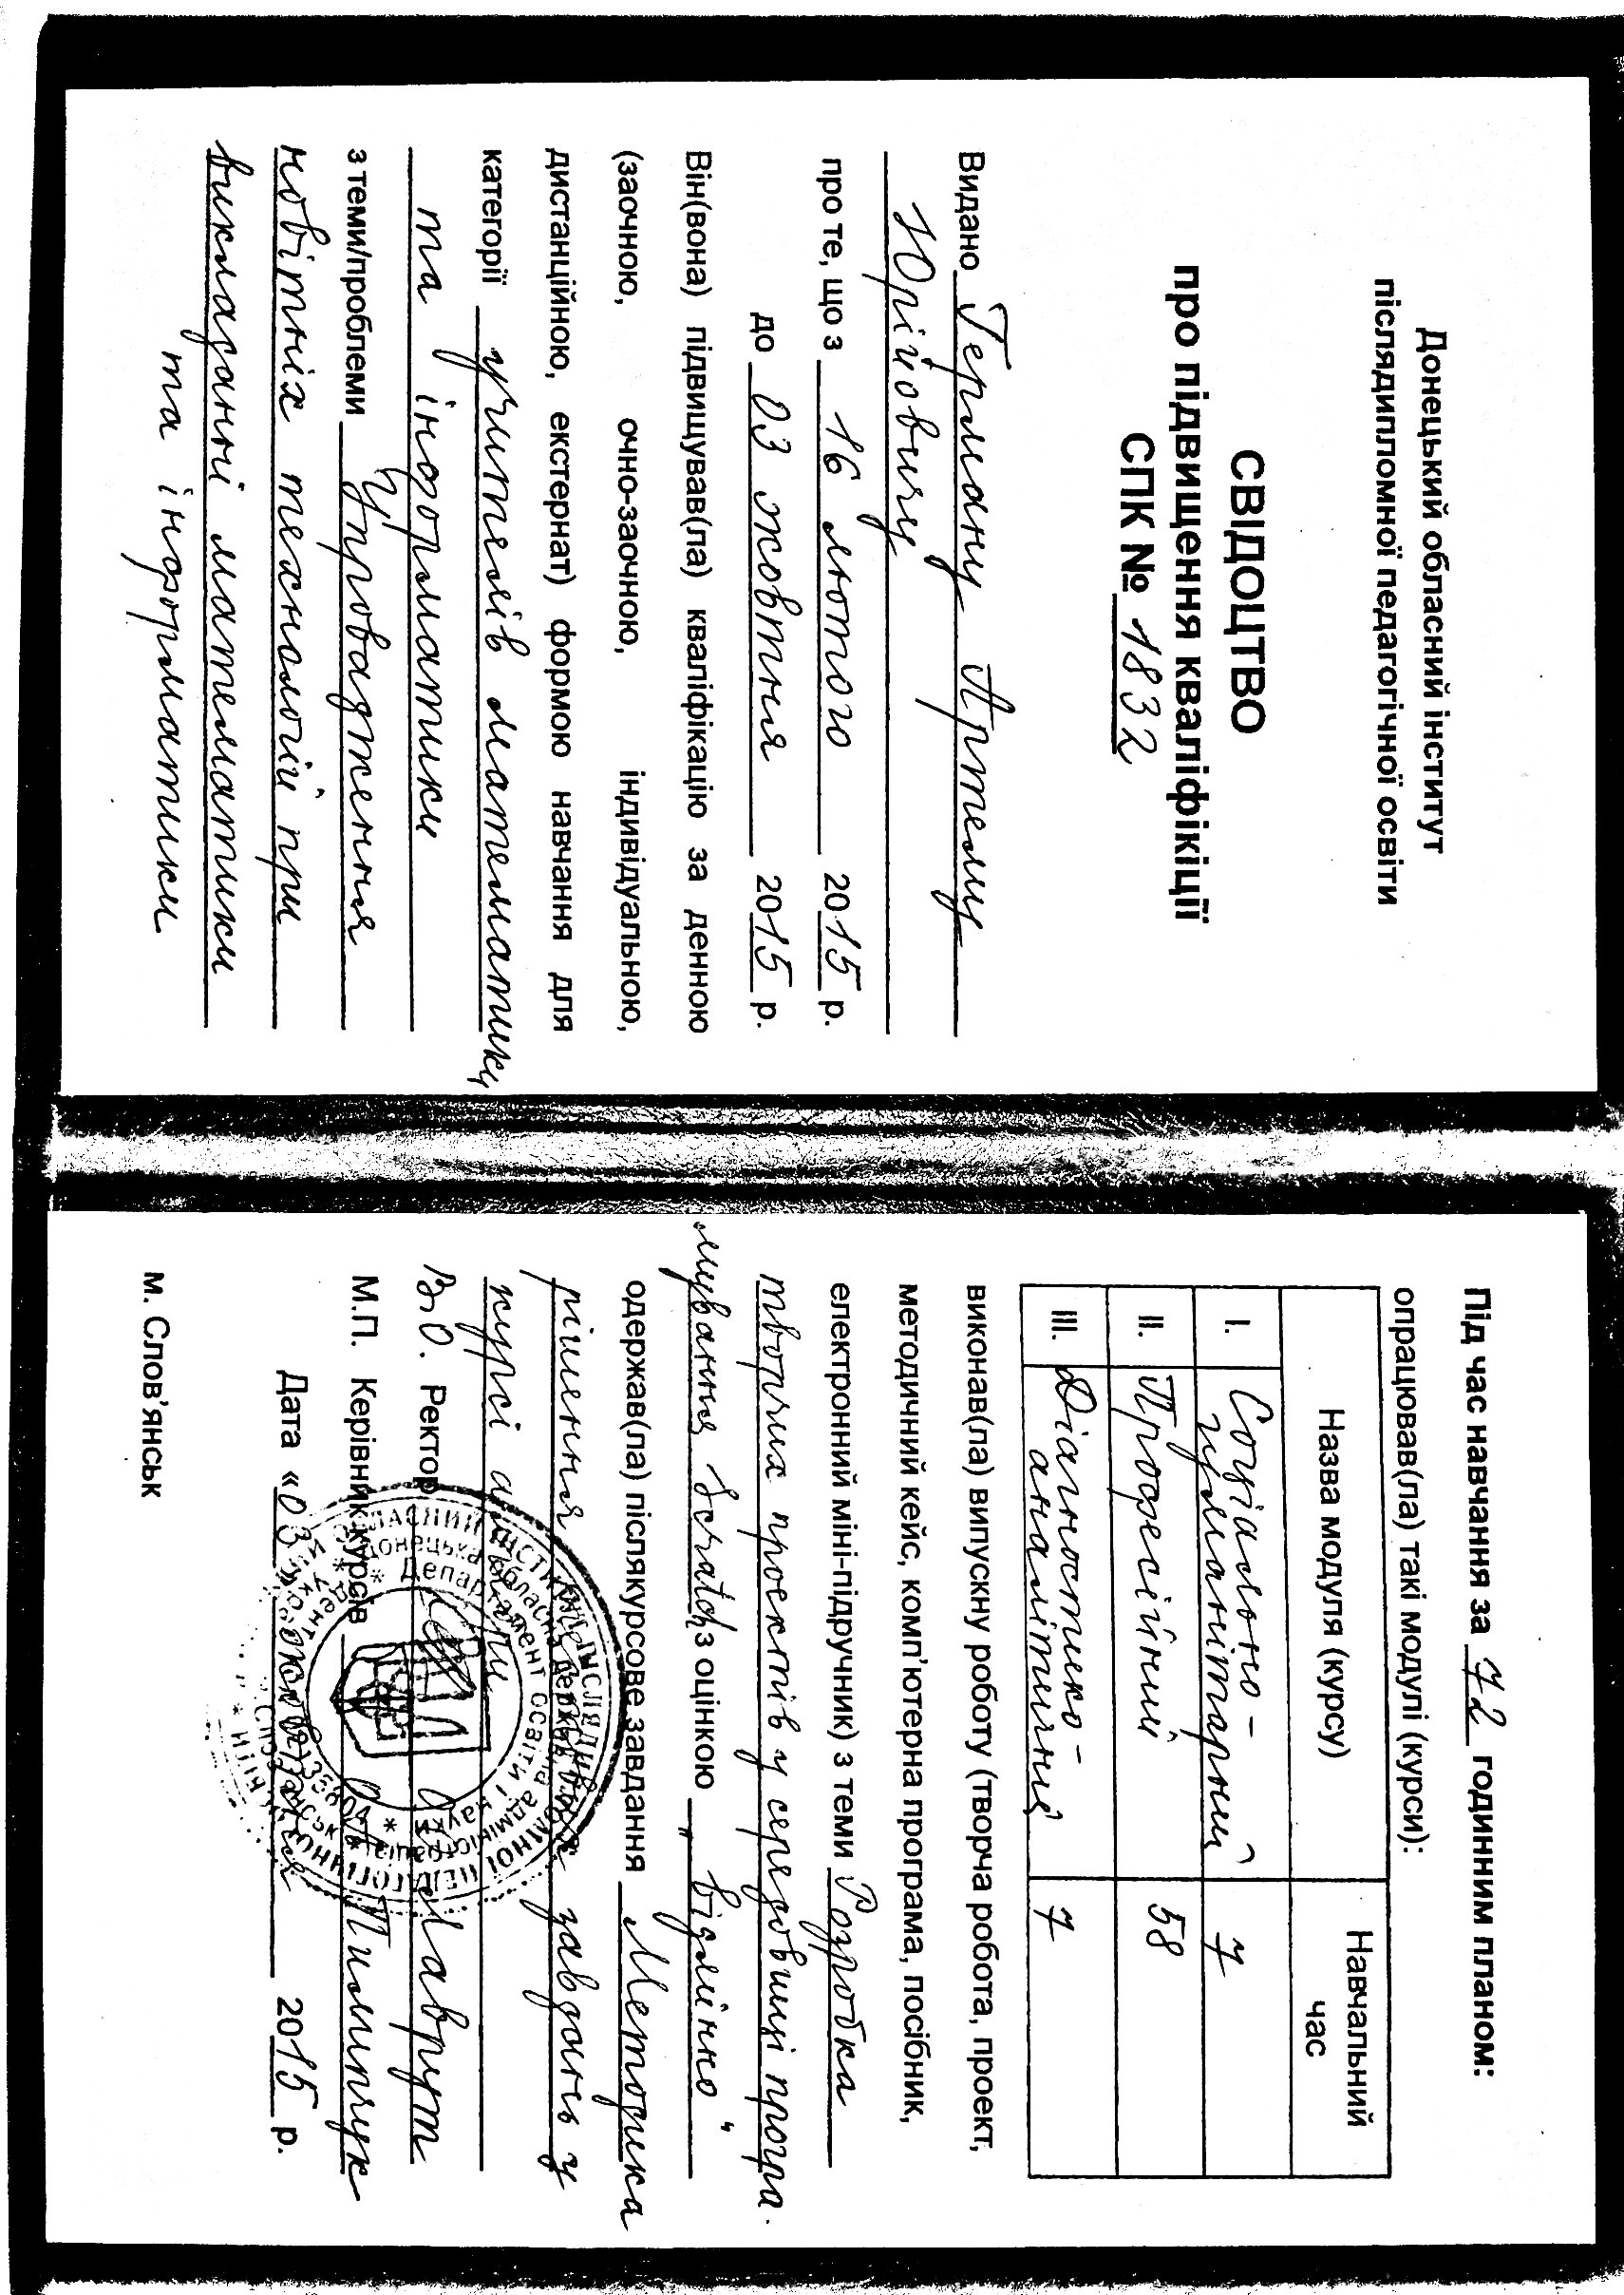 Донецький обласний інститут
післядипломної педагогічної освіти
СВІДОЦТВО
про підвищення кваліфікіції
СПК № 1832
Видано Герману Артему
Юрійовичу
про те, що з 16 лютого 2015 р.
до 03 жовтня 2015 р.
Він(вона) підвищував(ла) кваліфікацію за денною
(заочною, очно-заочною, індивідуальною,
дистанційною, екстернат) формою навчання для
категорії учителів математики
та інформатики
з теми/проблеми Упровадження
новітніх технологій при
викладанні математики
та інформатики
Під час навчання за 72 годинним планом:
опрацював(ла) такі модулі (курси):
Назва модуля (курсу) Навчальний час
І. Соціально-гуманітарний 7
ІІ. Професійний 58
ІІІ. Діагностико-аналітичний 7
виконав(ла) випускну роботу (творча робота, проект,
методичний кейс, комп'ютерна програма, посібник,
електронний міні-підручник) з теми Розробка
творчих проектів у середовищі програ-
мування Scratch з оцінкою „відмінно"
одержав(ла) післякурсове завдання Методика
рішення завдань у
курсі
В.О. Ректор
М.П. Керівник курсів
Дата «03» жовтня 2015 р.
м. Слов'янськ